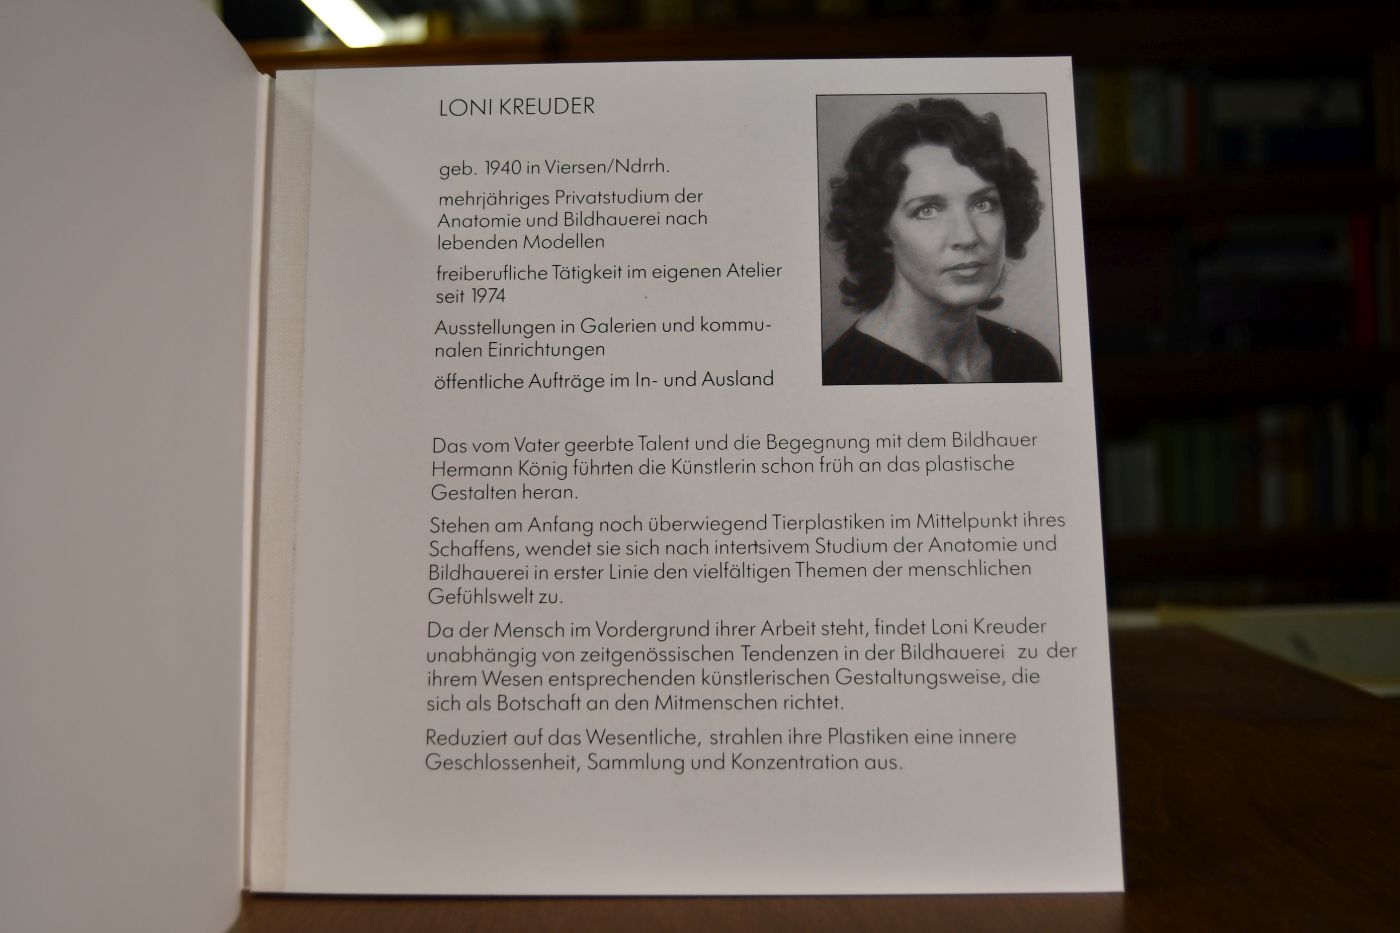 LONI KREUDER
geb. 1940 in Viersen/Ndrrh.
mehrjähriges Privatstudium der
Anatomie und Bildhauerei nach
lebenden Modellen
freiberufliche Tätigkeit im eigenen Atelier
seit 1974
Ausstellungen in Galerien und kommu-
nalen Einrichtungen
öffentliche Aufträge im In- und Ausland
Das vom Vater geerbte Talent und die Begegnung mit dem Bildhauer
Hermann König führten die Künstlerin schon früh an das plastische
Gestalten heran.
Stehen am Anfang noch überwiegend Tierplastiken im Mittelpunkt ihres
Schaffens, wendet sie sich nach intertsivem Studium der Anatomie und
Bildhauerei in erster Linie den vielfältigen Themen der menschlichen
Gefühlswelt zu.
Da der Mensch im Vordergrund ihrer Arbeit steht, findet Loni Kreuder
unabhängig von zeitgenössischen Tendenzen in der Bildhauerei zu der
ihrem Wesen entsprechenden künstlerischen Gestaltungsweise, die
sich als Botschaft an den Mitmenschen richtet.
Reduziert auf das Wesentliche, strahlen ihre Plastiken eine innere
Geschlossenheit, Sammlung und Konzentration aus.